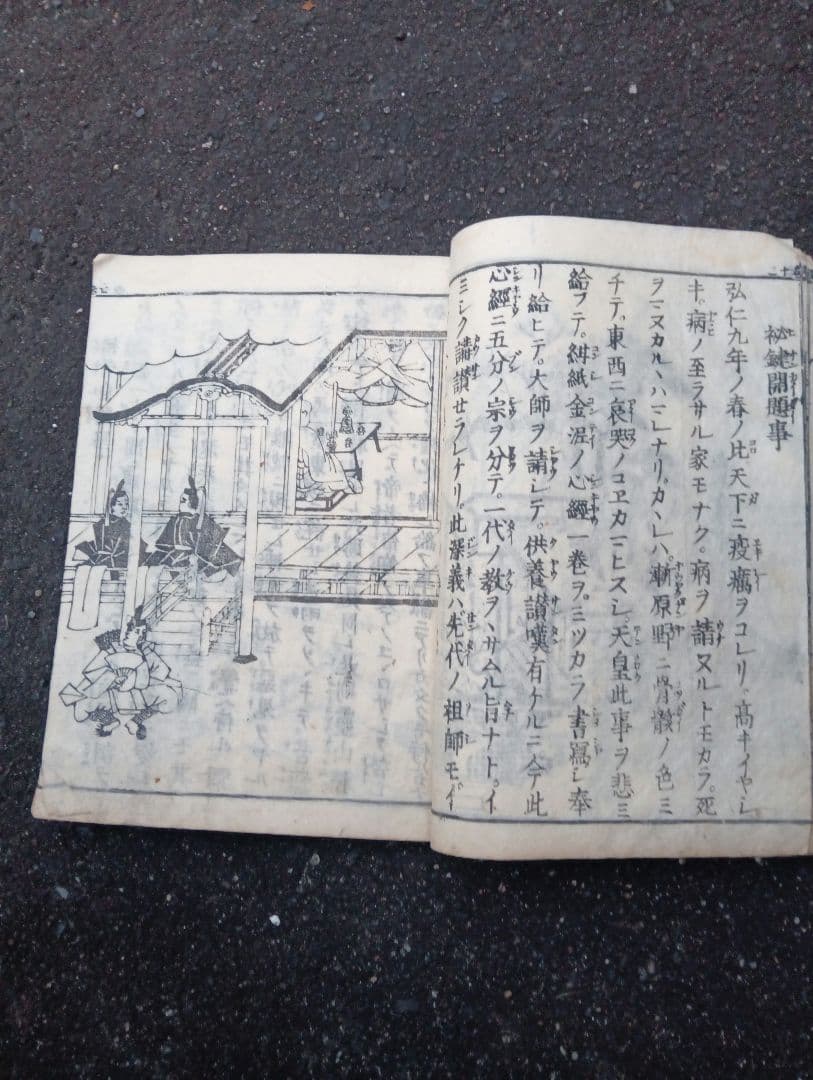 秘鍵開題事
弘仁九年ノ春ノ比天下ニ疫癘ヲコレリ高キイヤシ
キ。病ノ至ラサル家モナク。病ヲ請ヌルトモカラ。死
ヲマヌカルヽハマレナリ。カヽレハ。郊原野ニ骨骸ノ色ミ
チテ。東西ニ哀哭ノコヱカマヒスシ。天皇此事ヲ悲ミ
給フテ。紺紙金泥ノ心經一巻ヲ。ミツカラ書寫シ奉
リ給ヒテ。大師ヲ請シテ。供養讃嘆有ケルニ
心經ニ五分ノ宗ヲ分テ。一代ノ教ヲヽサムル旨ナト。イ
ミシク講讃セラレケリ。此深義ハ先代ノ祖師モイ